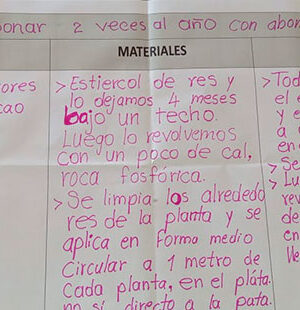 onar 2 veces al año con abon
MATERIALES
ores
cao
> Estiercol de res y
lo dejamos 4 meses
bajo un techo.
Luego lo revolvemos
con un poco de cal,
roca fosfórica.
> Se limpia los alrededo
res de la planta y se
aplica en forma medio
Circular a 1 metro de
Cada planta, en el pláta.
no si directo a la pata.
> Tod
el
y e
a
en
> Se
> Lu
rev
de
en